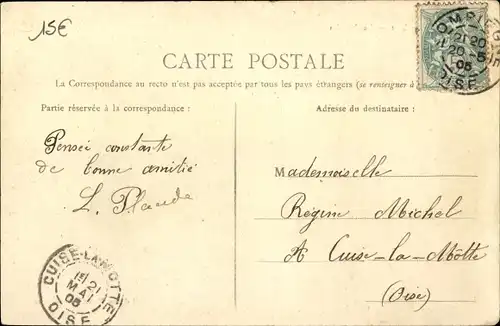 15€
CARTE POSTALE
La Correspondance au recto n'est pas acceptée par tous les pays étrangers (se renseigner à
Partie réservée à la correspondance :
Adresse du destinataire :
Pensée constante
de bonne amitié
L. Plaude
Mademoiselle
Régine Michel
A Cuise-la-Motte
(Oise)
CUISE-LA-MOTTE
1E 21
MAI
05
OISE
21 20
20 -5
05
OISE